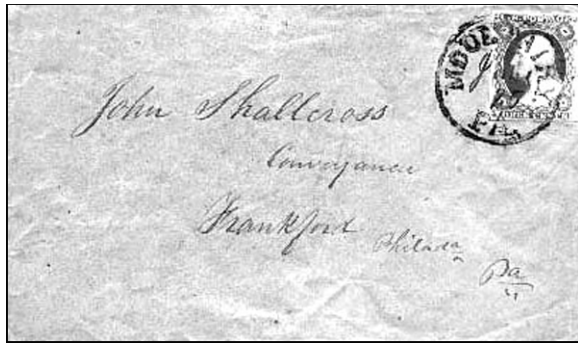 U.S. POSTAGE
PA.
John Shallcross
Conveyancer
Frankford
Philada
Pa